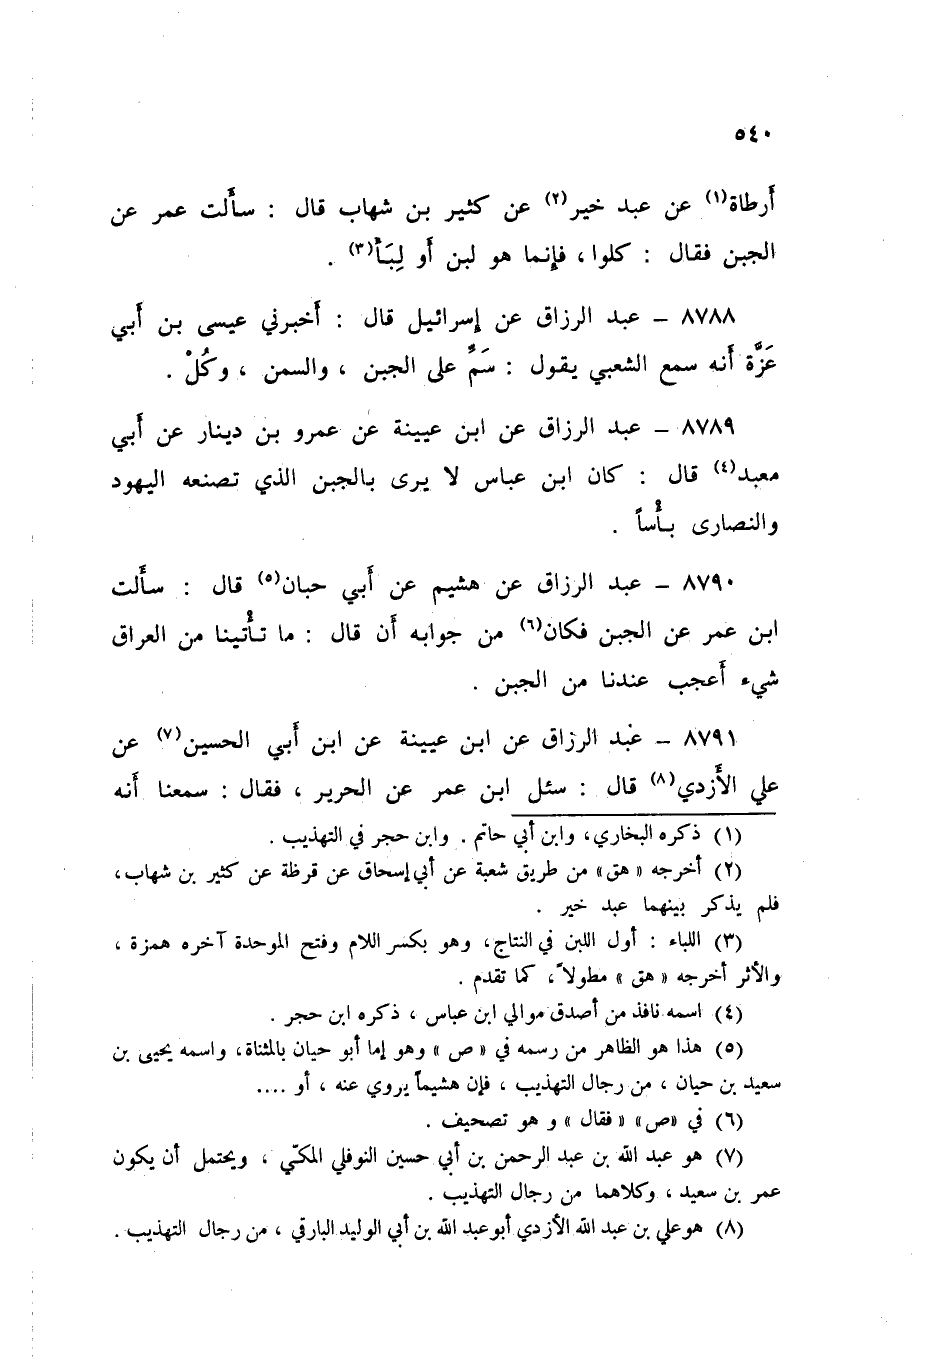 ٥٤٠
أرطاة(١) عن عبد خير(٢) عن كثير بن شهاب قال : سألت عمر عن
الجبن فقال : كلوا ، فإنما هو لبن أو لِبَأ(٣) .
٨٧٨٨ – عبد الرزاق عن إسرائيل قال : أخبرني عيسى بن أبي
عَزَّة أنه سمع الشعبي يقول : سَمِّ على الجبن ، والسمن ، وكُلْ .
٨٧٨٩ – عبد الرزاق عن ابن عيينة عن عمرو بن دينار عن أبي
معبد(٤) قال : كان ابن عباس لا يرى بالجبن الذي تصنعه اليهود
والنصارى بأساً .
٨٧٩٠ – عبد الرزاق عن هشيم عن أبي حبان(٥) قال : سألت
ابن عمر عن الجبن فكان(٦) من جوابه أن قال : ما تأتينا من العراق
شيء أعجب عندنا من الجبن .
٨٧٩١ – عبد الرزاق عن ابن عيينة عن ابن أبي الحسين(٧) عن
علي الأزدي(٨) قال : سئل ابن عمر عن الحرير ، فقال : سمعنا أنه
(١) ذكره البخاري ، وابن أبي حاتم . وابن حجر في التهذيب .
(٢) أخرجه « هق » من طريق شعبة عن أبي إسحاق عن قرظة عن كثير بن شهاب ،
فلم يذكر بينهما عبد خير .
(٣) اللباء : أول اللبن في النتاج ، وهو بكسر اللام وفتح الموحدة آخره همزة ،
والأثر أخرجه « هق » مطولاً ، كما تقدم .
(٤) اسمه نافذ من أصدق موالي ابن عباس ، ذكره ابن حجر .
(٥) هذا هو الظاهر من رسمه في « ص » وهو إما أبو حيان بالمثناة ، واسمه يحيى بن
سعيد بن حيان ، من رجال التهذيب ، فإن هشيماً يروي عنه ، أو ....
(٦) في «ص» « فقال » و هو تصحيف .
(٧) هو عبد الله بن عبد الرحمن بن أبي حسين النوفلي المكّي ، ويحتمل أن يكون
عمر بن سعيد ، وكلاهما من رجال التهذيب .
(٨) هو علي بن عبد الله الأزدي أبو عبد الله بن أبي الوليد البارقي ، من رجال التهذيب .